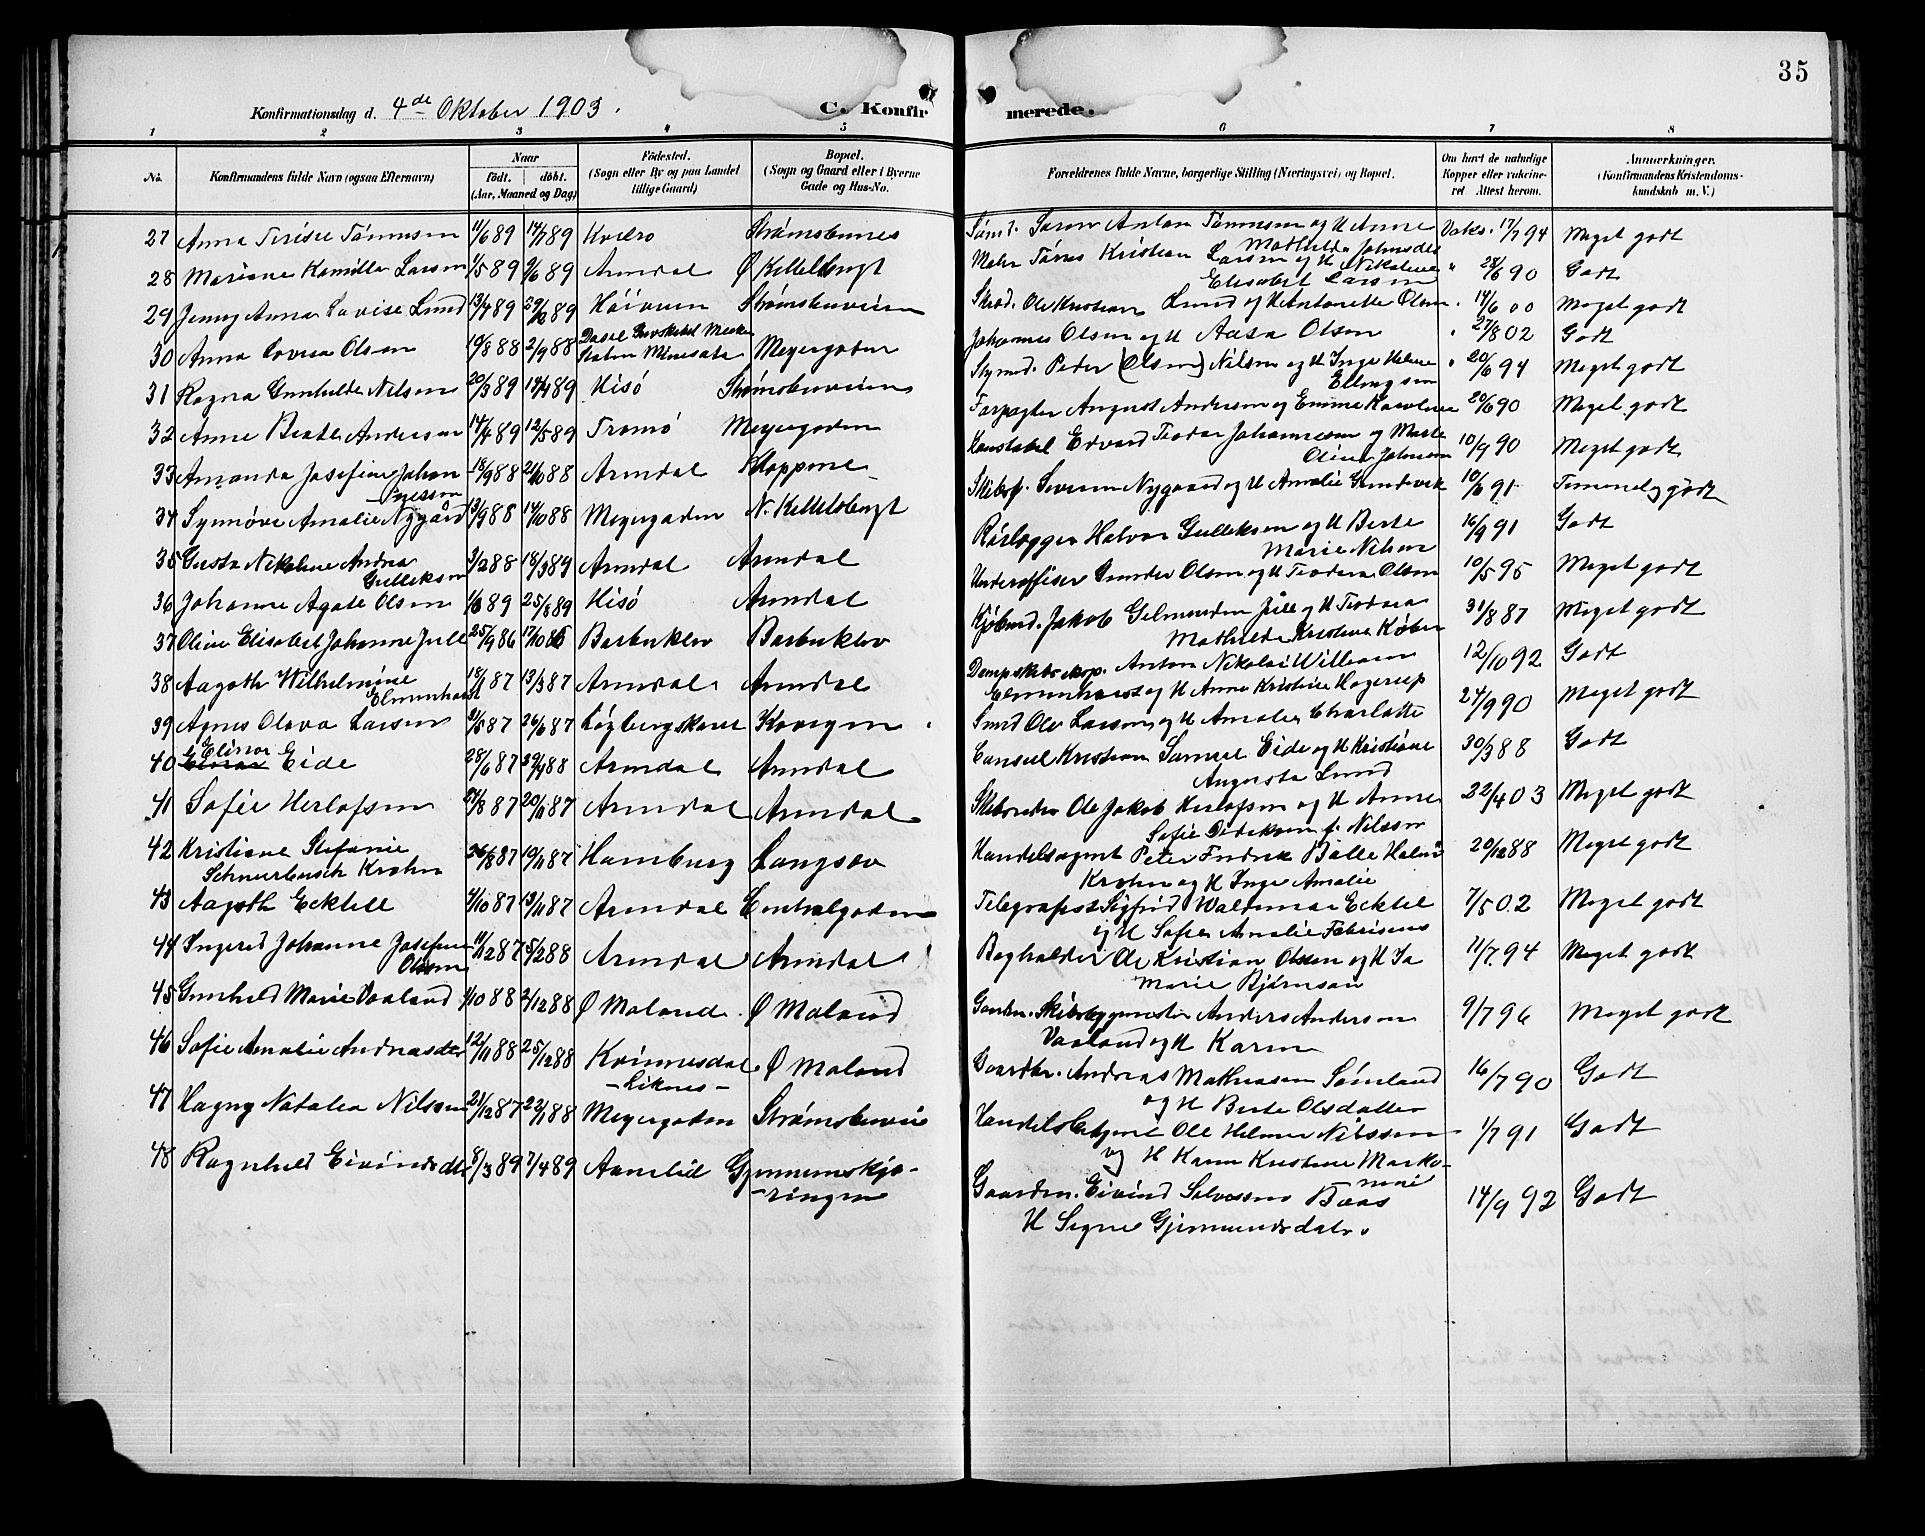 35
Konfirmationsdag d. 4de Oktober 1903.
C. Konfirmerede.
1 2 3 4 5 6 7 8
No. Konfirmandens fulde Navn (ogsaa Efternavn) Naar födt. döbt. (Aar, Maaned og Dag) Födested. (Sogn eller By og paa Landet tillige Gaard) Bopæl. (Sogn og Gaard eller i Byerne Gade og Hus-No. Forældrenes fulde Navne, borgerlige Stilling (Næringsvei) og Bopæl. Om havt de naturlige Kopper eller vaccineret Attest herom. Anmærkninger. (Konfirmandens Kristendomskundskab m. V.)
27 Anna Terisie Tönnesen 11/6 89 14/7 89 Strömsbunes Sömd. Anton Tönnesen og H Anne Mathilde Johnsdtr Vaks. 17/7 94 Meget godt
28 Mariane Kamilla Larsen 1/5 89 9/6 89 Arendal Ø Kittelsbugt Maler Tönnes Kristian Larsen og H Nikoline Elisabet Larsen " 28/6 90 Godt
29 Jenny Anna Lovise Lund 13/4 89 Höiven Strömsbuveien Skred. Ole Kristian Lund og H Antonette Olsen " 14/6 00 Meget godt
30 Anna Lovisa Olsen 19/8 88 2/9 88 Minesota Meyergaden Johannes Olsen og H Aasa Olson " 27/8 02 Godt
31 Ragna Gunhilde Nilsen 20/3 89 14/4 89 Hisö Strömsbuveien Styrmd. Peder (Olsen) Nilsen og H Inge Helene Ellingsen " 20/6 94 Meget godt
32 Anne Beate Andersen 14/4 89 12/5 89 Tromö Meyergaden Forpagter August Andersen og Emma Karoline 20/6 90 Meget godt
33 Amanda Josefine Johannesson 18/9 88 21/10 88 Arendal Kloppene Konstabel Edvard Teodor Johannesen og Marte Oline Johnsen 10/9 90 Meget godt
34 Synnöve Amalie Nygård 13/9 88 14/10 88 Meyergaden N. Kittelsbugt Skibsf. Severin Nygaard og H Amalie Gundersk 10/6 91 Temmelig godt
35 Gusta Nikoline Andrea Gulleksen 3/12 88 18/3 89 Arendal Arendal Rörlægger Halvor Gulleksen og H Berte Marie Nilsen 16/9 91 Godt
36 Johanne Agate Olsen 1/3 89 25/8 89 Hisö Arendal Underoffiser Gunder Olsen og H Teodora Olsen 10/5 95 Meget godt
37 Oline Elisabet Johanne Jull 25/9 86 17/10 86 Barbuklev Barbuklev Kjöbmd. Jakob Gelmunden Jüll og H Teodora Mathilde Kristine Köber 31/8 87 Meget godt
38 Aagoth Wilhelmine Elmenhorst 18/1 87 13/3 87 Arendal Arendal Dampskibsexp. Anton Nikolai William Elmenhorst og H Anne Kristine Hagerup 12/10 92 Godt
39 Agnes Olava Larsen 9/5 87 26/6 87 Kovigen Smed Ole Larsen og H Amalie Charlotte 24/9 90 Meget godt
40 Elinor Eide 28/6 87 29/4 88 Arendal Arendal Consul Kristian Samuel Eide og H Kristiane Augusta Lund 30/3 88 Godt
41 Sofie Herlofsen 24/8 87 20/11 87 Arendal Arendal Skibsreder Ole Jakob Herlofsen og H Anne Sofie Dideksen f. Nilsen 22/4 03 Meget godt
42 Kristiane Stefanie Schneerbusch Krohn 26/8 87 19/11 87 Hamburg Langsæv Handelsagent Peter Fredrik Balle Holm Krohn og H Inga Amalie 20/12 88 Meget godt
43 Aagoth Ecktell 4/10 87 13/11 87 Arendal Centralgaden Telegrafist Sigfrid Waldemar Ecktel og H Sofie Amalie Fabrisens 7/5 02 Meget godt
44 Ingerid Johanne Josefine Olssen 11/12 87 5/2 88 Arendal Arendal Bogholder Ole Kristian Olssen og H Ja Marie Björnson 11/7 94 Meget godt
45 Gunhild Marie Vaaland 1/10 88 2/12 88 Ø Moland Ø Moland Gaardm. Skibsbyggmester Anders Andersen Vaaland og H Karen 9/7 96 Meget godt
46 Sofie Amalie Andreasdtr 12/11 88 25/12 88 Kvinnesdal –Liknes– Ø Moland Gaardbr. Andreas Mathiasen Sömland og H Berte Olsdatter 16/7 90 Godt
47 Hagny Natalia Nilssen 21/12 87 22/1 88 Meyergaden Strömsbuvei Handelsbetjent Ole Helmer Nilssen og H Karen Kristine Marko- 1/7 91 Godt
48 Ragnhild Eivindsdtr 8/3 89 7/4 89 Aamlid Gjennemskjæ-ringen Gaardm. Eivind Salvessen Baas H Signe Gjermundsdatr. 14/9 92 Godt